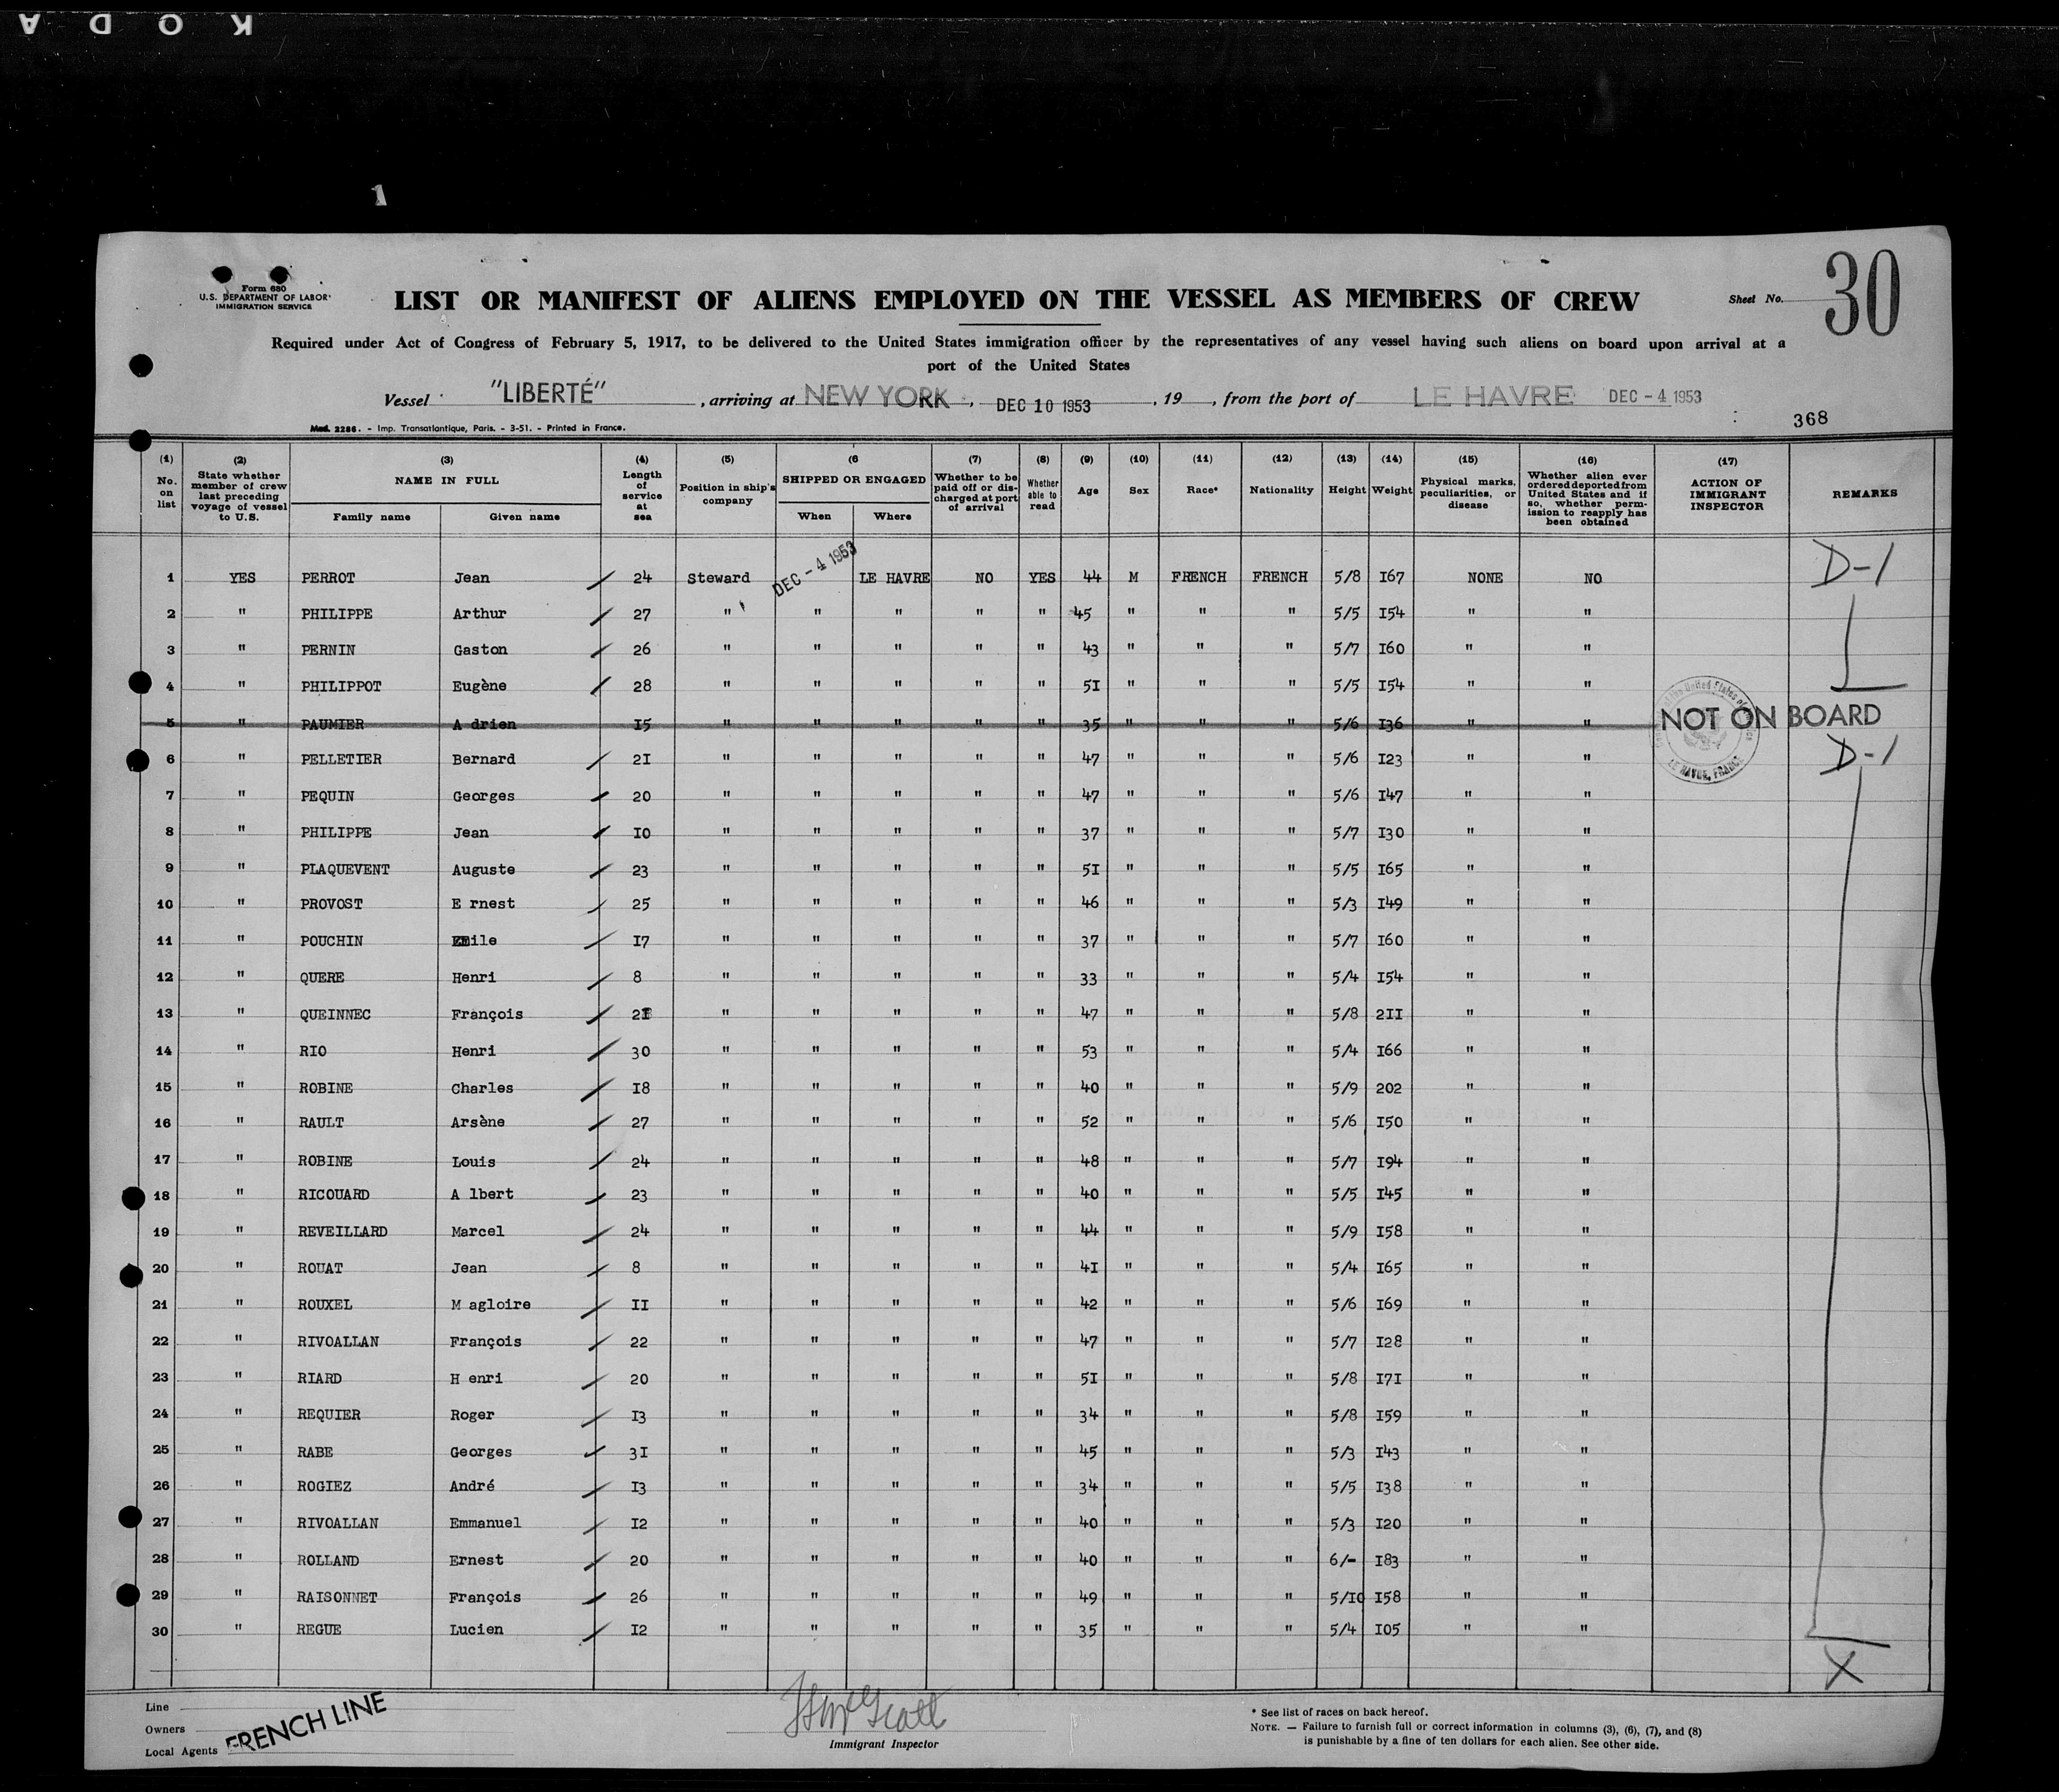 KODA
1
Form 680
U.S. DEPARTMENT OF LABOR
IMMIGRATION SERVICE
LIST OR MANIFEST OF ALIENS EMPLOYED ON THE VESSEL AS MEMBERS OF CREW
Sheet No. 30
Required under Act of Congress of February 5, 1917, to be delivered to the United States immigration officer by the representatives of any vessel having such aliens on board upon arrival at a
port of the United States
Vessel "LIBERTÉ", arriving at NEW YORK, DEC 10 1953, 19, from the port of LE HAVRE DEC -4 1953
368
Mod. 2286. - Imp. Transatlantique, Paris. - 3-51. - Printed in France.
(1) No. on list (2) State whether member of crew last preceding voyage of vessel to U.S. (3) NAME IN FULL Family name Given name (4) Length of service at sea (5) Position in ship's company (6 SHIPPED OR ENGAGED When Where (7) Whether to be paid off or discharged at port of arrival (8) Whether able to read (9) Age (10) Sex (11) Race* (12) Nationality (13) Height (14) Weight (15) Physical marks, peculiarities, or disease (16) Whether alien ever ordered deported from United States and if so, whether permission to reapply has been obtained (17) ACTION OF IMMIGRANT INSPECTOR REMARKS
1 YES PERROT Jean 24 Steward DEC -4 1953 LE HAVRE NO YES 44 M FRENCH FRENCH 5/8 167 NONE NO D-1
2 " PHILIPPE Arthur 27 " " " " " 45 " " " 5/5 154 " "
3 " PERNIN Gaston 26 " " " " " 43 " " " 5/7 160 " "
4 " PHILIPPOT Eugène 28 " " " " " 51 " " " 5/5 154 " "
5 " PAUMIER A drien 15 " " " " " 35 " " " 5/6 136 " " NOT ON BOARD
LE HAVRE, FRANCE
6 " PELLETIER Bernard 21 " " " " " 47 " " " 5/6 123 " " D-1
7 " PEQUIN Georges 20 " " " " " 47 " " " 5/6 147 " "
8 " PHILIPPE Jean 10 " " " " " 37 " " " 5/7 130 " "
9 " PLAQUEVENT Auguste 23 " " " " " 51 " " " 5/5 165 " "
10 " PROVOST E rnest 25 " " " " " 46 " " " 5/3 149 " "
11 " POUCHIN Emile 17 " " " " " 37 " " " 5/7 160 " "
12 " QUERE Henri 8 " " " " " 33 " " " 5/4 154 " "
13 " QUEINNEC François 21 " " " " " 47 " " " 5/8 211 " "
14 " RIO Henri 30 " " " " " 53 " " " 5/4 166 " "
15 " ROBINE Charles 18 " " " " " 40 " " " 5/9 202 " "
16 " RAULT Arsène 27 " " " " " 52 " " " 5/6 150 " "
17 " ROBINE Louis 24 " " " " " 48 " " " 5/7 194 " "
18 " RICOUARD A lbert 23 " " " " " 40 " " " 5/5 145 " "
19 " REVEILLARD Marcel 24 " " " " " 44 " " " 5/9 158 " "
20 " ROUAT Jean 8 " " " " " 41 " " " 5/4 165 " "
21 " ROUXEL M agloire 11 " " " " " 42 " " " 5/6 169 " "
22 " RIVOALLAN François 22 " " " " " 47 " " " 5/7 128 " "
23 " RIARD H enri 20 " " " " " 51 " " " 5/8 171 " "
24 " REQUIER Roger 13 " " " " " 34 " " " 5/8 159 " "
25 " RABE Georges 31 " " " " " 45 " " " 5/3 143 " "
26 " ROGIEZ André 13 " " " " " 34 " " " 5/5 138 " "
27 " RIVOALLAN Emmanuel 12 " " " " " 40 " " " 5/3 120 " "
28 " ROLLAND Ernest 20 " " " " " 40 " " " 6/- 183 " "
29 " RAISONNET François 26 " " " " " 49 " " " 5/10 158 " "
30 " REGUE Lucien 12 " " " " " 35 " " " 5/4 105 " "
X
Line
Owners
Local Agents FRENCH LINE
Immigrant Inspector
* See list of races on back hereof.
NOTE. — Failure to furnish full or correct information in columns (3), (6), (7), and (8)
is punishable by a fine of ten dollars for each alien. See other side.